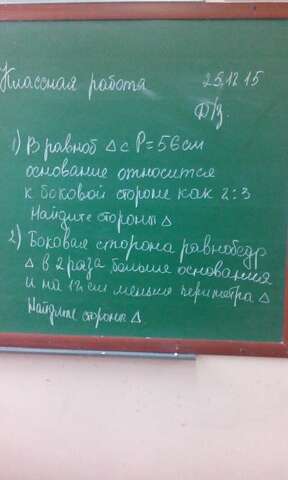 Классная работа 25.12.15
Д/з.
1) В равноб △ с P=56см
основание относится
к боковой стороне как 2:3
Найдите стороны △
2) Боковая сторона равнобедр
△ в 2 раза больше основания
и на 12 см меньше периметра △
Найдите стороны △.